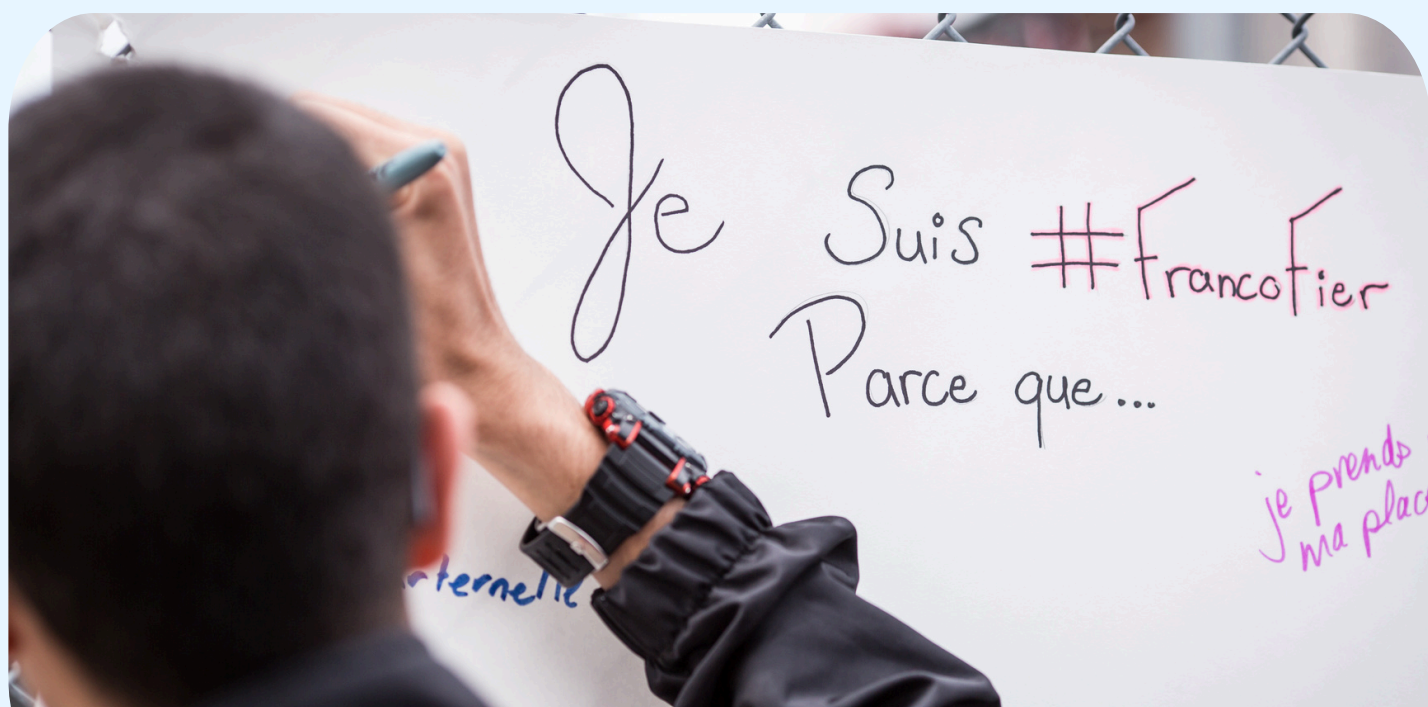 Je Suis #francofier
Parce que...
je prends
ma plac